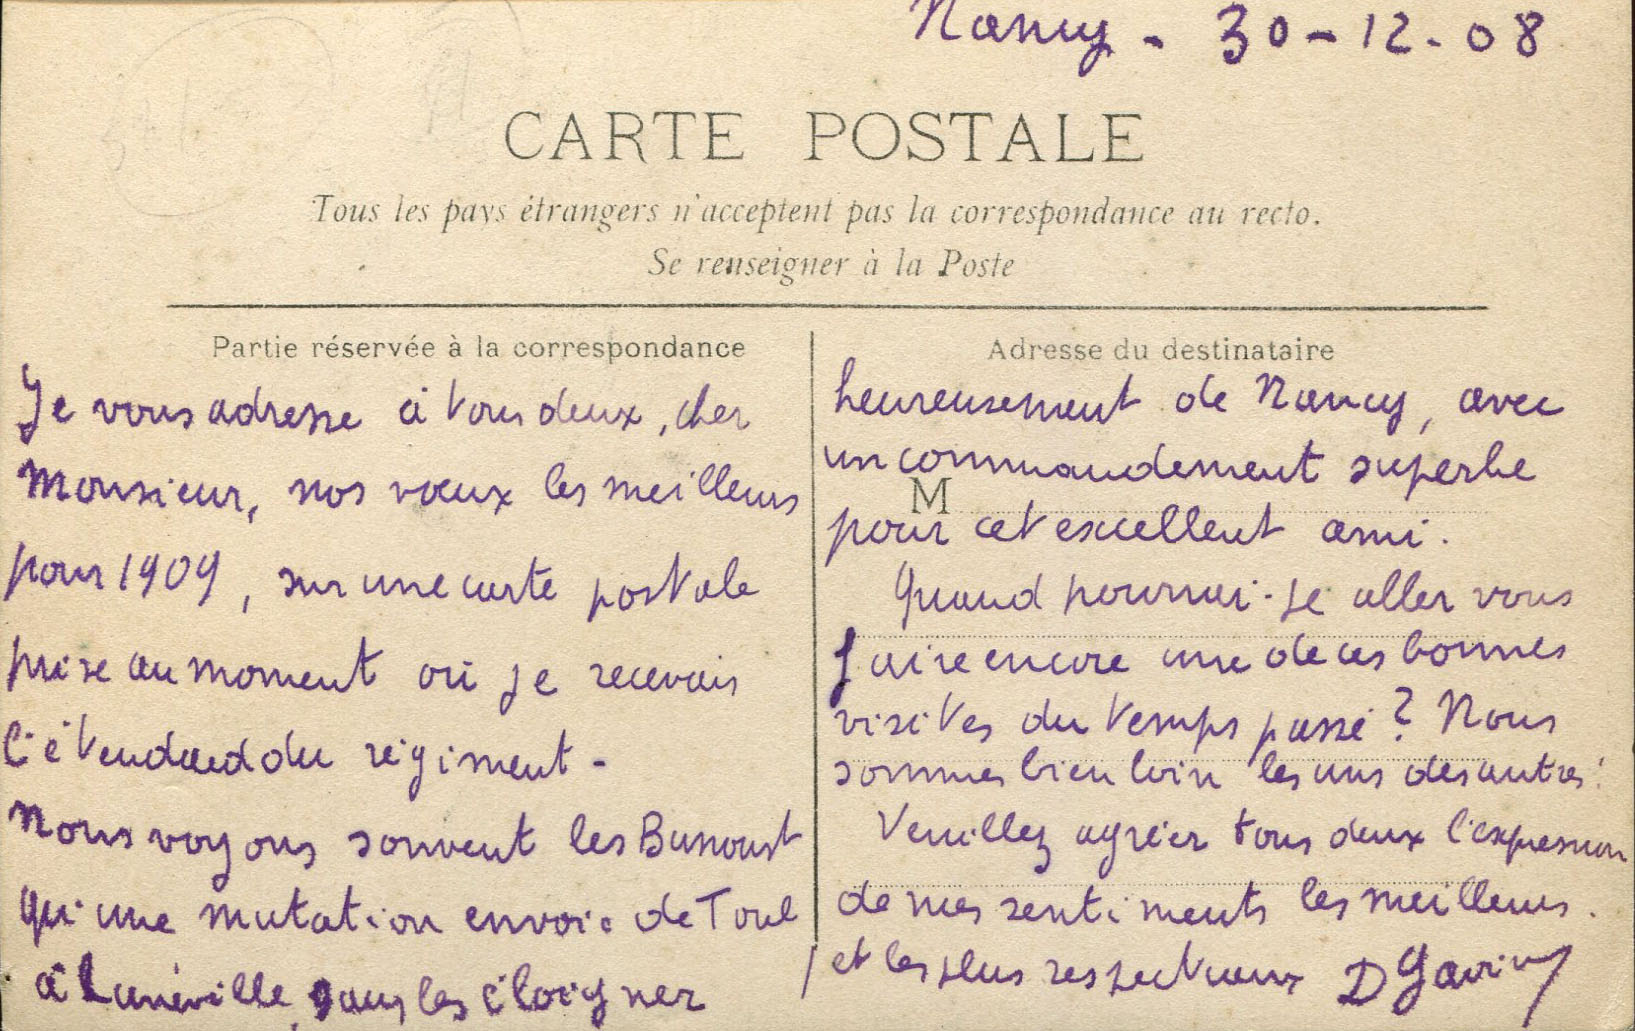 Nancy - 30-12-08
CARTE POSTALE
Tous les pays étrangers n'acceptent pas la correspondance au recto.
Se renseigner à la Poste
Partie réservée à la correspondance
Je vous adresse à tous deux, cher
Monsieur, nos vœux les meilleurs
pour 1909, sur une carte postale
prise au moment où je recevais
l'étendard du régiment -
Nous voyons souvent les
qui une mutation envoie de Toul
à Lunéville, sans les éloigner
Adresse du destinataire
heureusement de Nancy, avec
un commandement superbe
M
pour cet excellent ami.
Quand pourrai-je aller vous
faire encore une de ces bonnes
visites du temps passé ? Nous
sommes bien loin les uns des autres !
Veuillez agréer tous deux l'expression
de mes sentiments les meilleurs.
et les plus respectueux